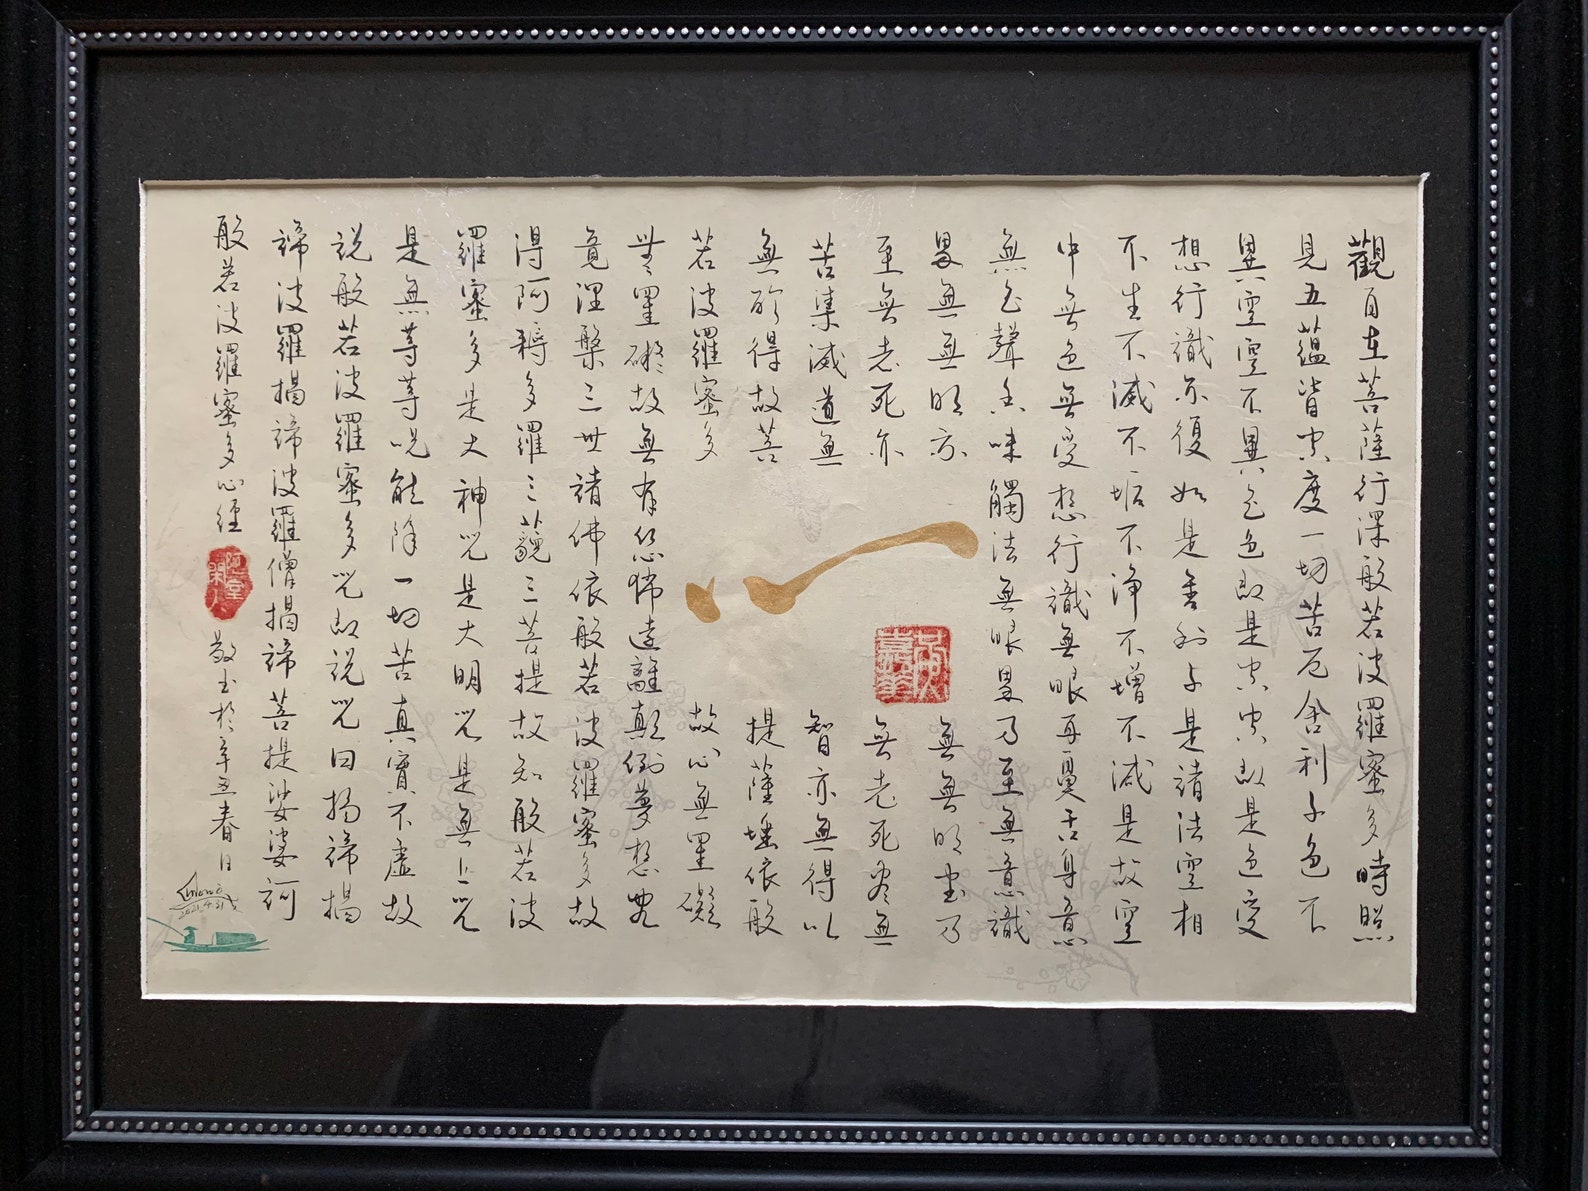 觀自在菩薩行深般若波羅蜜多時照
見五蘊皆空度一切苦厄舍利子色不
異空空不異色色即是空空即是色受
想行識亦復如是舍利子是諸法空相
不生不滅不垢不淨不增不減是故空
中無色無受想行識無眼耳鼻舌身意
無色聲香味觸法無眼界乃至無意識
界無無明亦無無明盡乃
至無老死亦無老死盡無
苦集滅道無智亦無得以
無所得故菩提薩埵依般
若波羅蜜多故心無罣礙
心
無罣礙故無有恐怖遠離顛倒夢想究
竟涅槃三世諸佛依般若波羅蜜多故
得阿耨多羅三藐三菩提故知般若波
羅蜜多是大神咒是大明咒是無上咒
是無等等咒能除一切苦真實不虛故
說般若波羅蜜多咒即說咒曰揭諦揭
諦波羅揭諦波羅僧揭諦菩提娑婆訶
般若波羅蜜多心經
敬書於辛丑春日